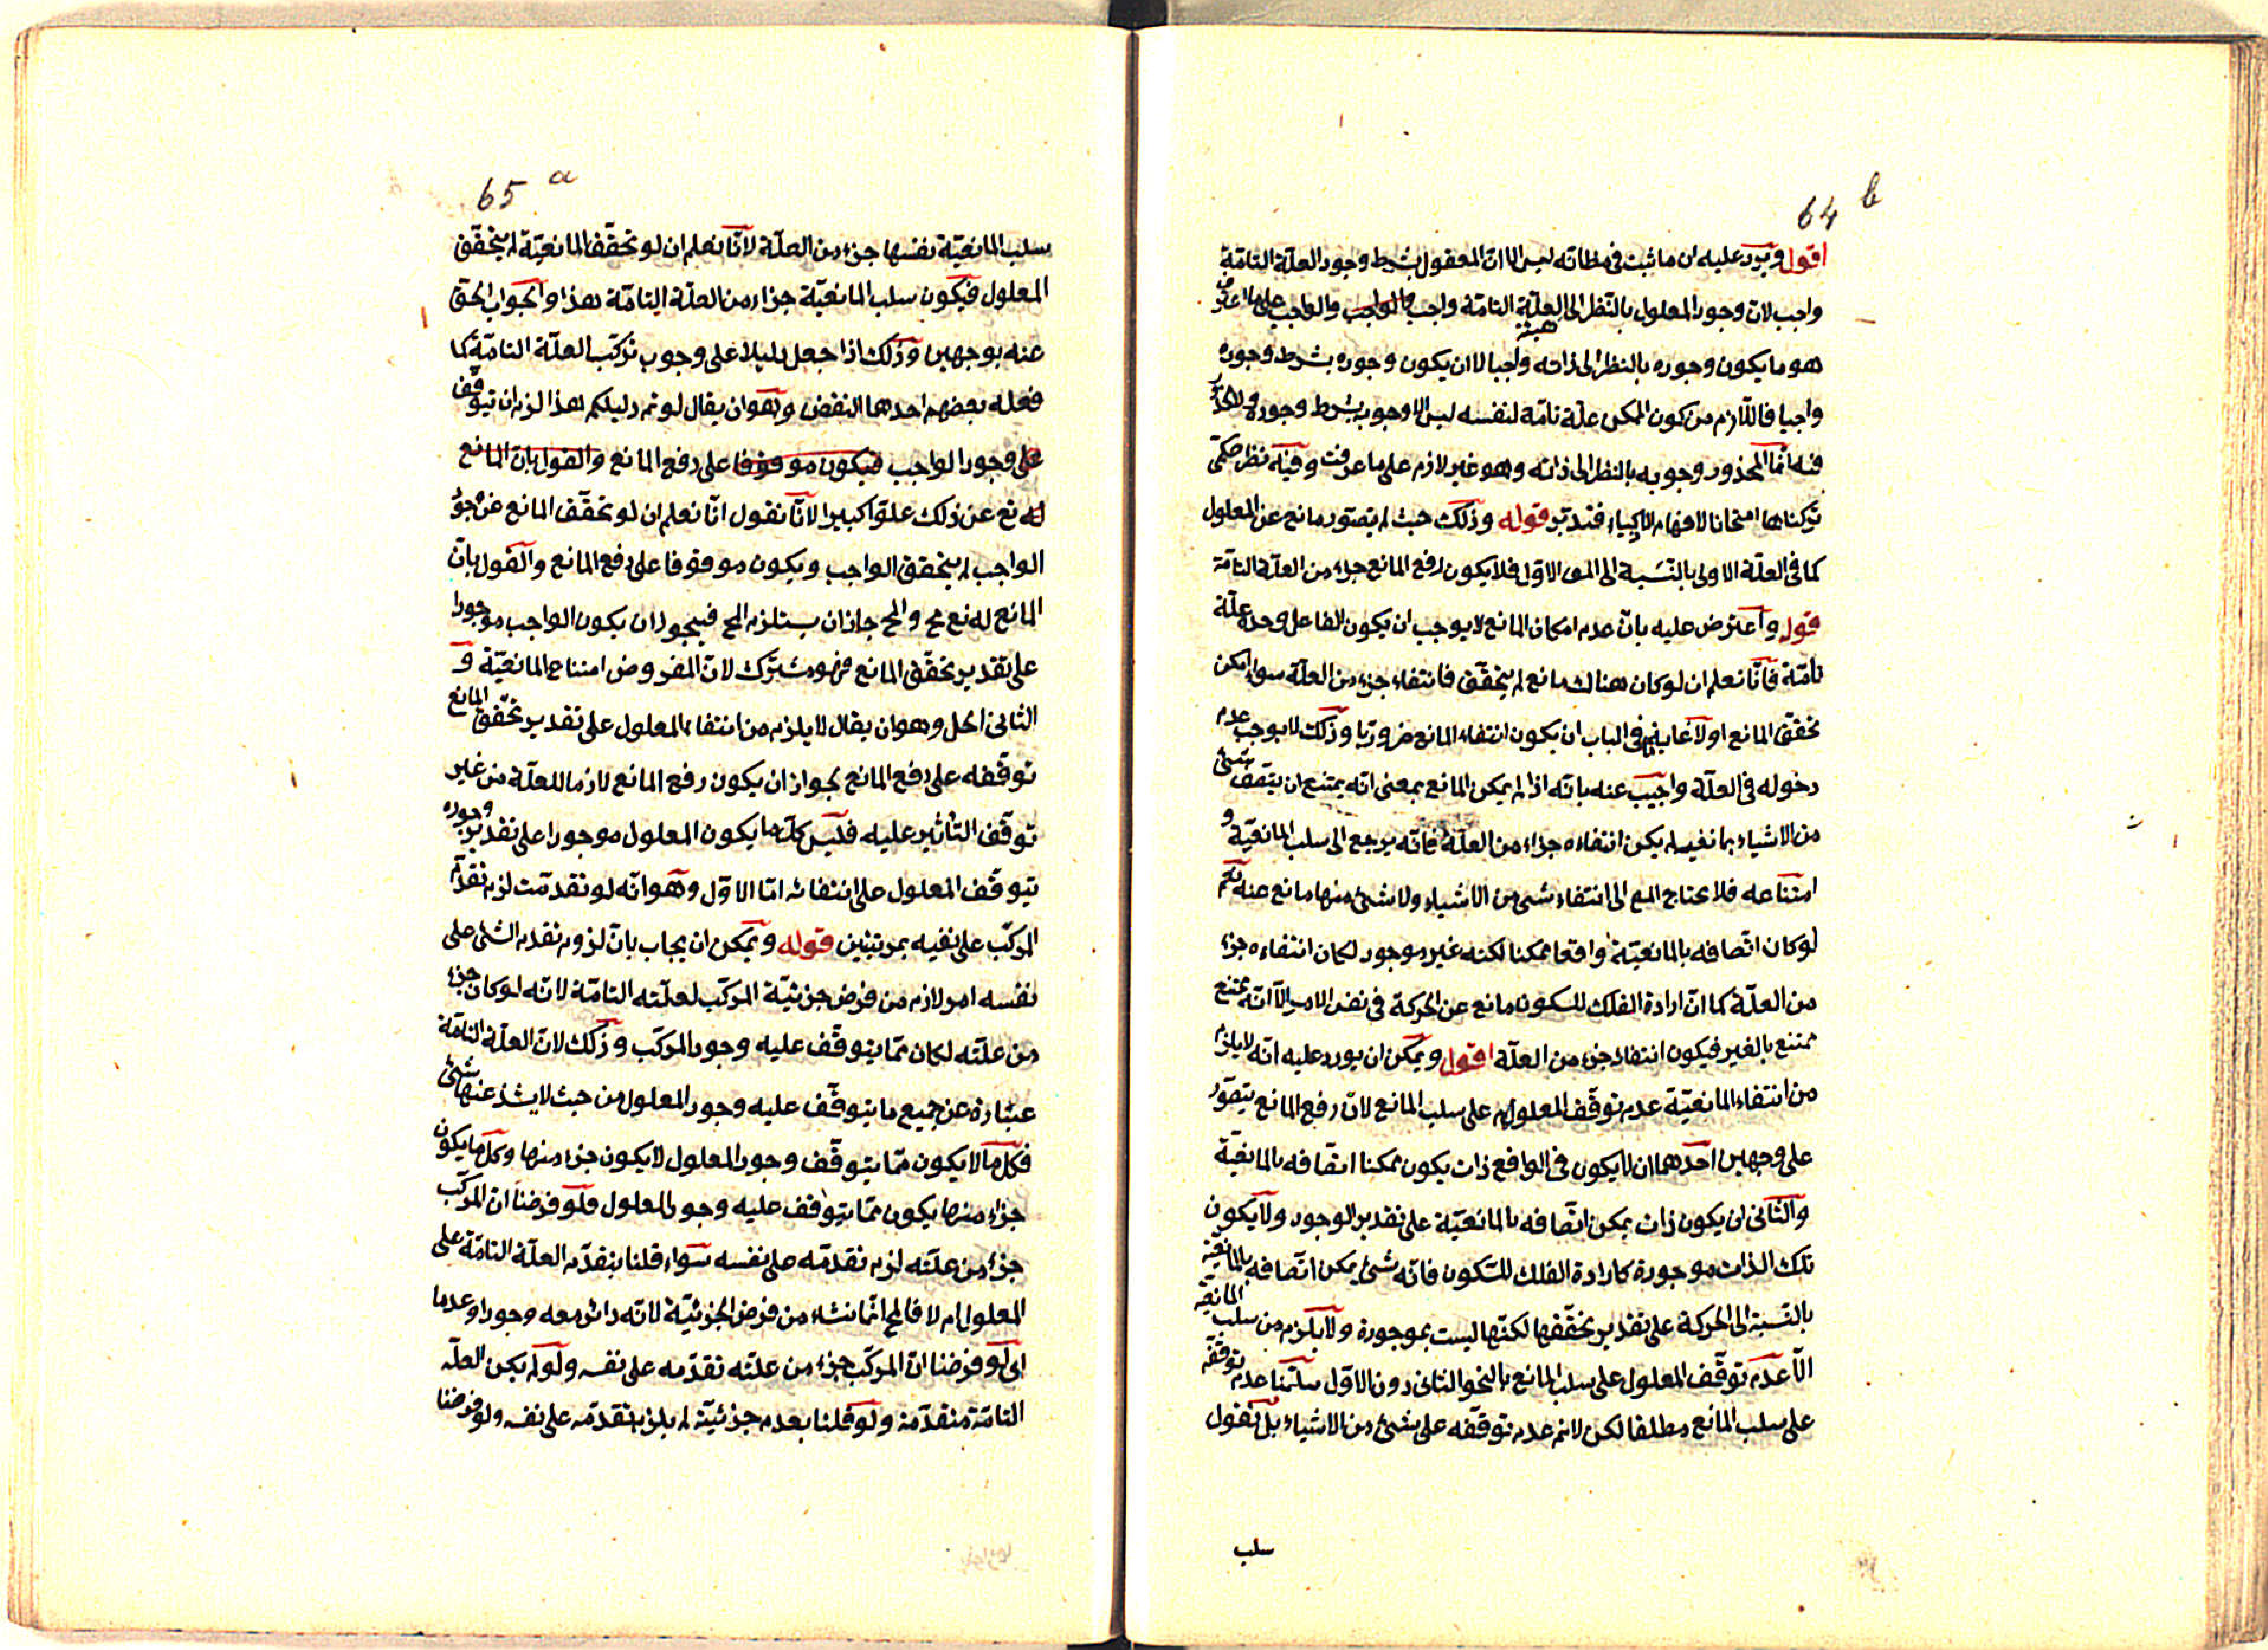 64 b
اقول ويرد عليه ان ما ثبت فى مظانه ليس الا انّ المعقول بشرط وجود العلّة التامّة
واجب لان وجود المعلول بالنّظر الى العلّة التامّة واجب فالواجب والواجب على ما عرف
هو ما يكون وجوده بالنظر الى ذاته واجبا لا ان يكون وجوده بشرط وجوده
واجبا فاللّازم من كون الممكن علّة تامّة لنفسه ليس الا وجوبه بشرط وجوده ولا محذور
فيه انّما المحذور وجوبه بالنظر الى ذاته وهو غير لازم على ما عرفت وفيه نظر حكمى
تركناها امتحانا لافهام الاذكياء فتدبّر قوله وذلك حيث لم يتصوّر مانع عن المعلول
كما فى العلّة الاولى بالنّسبة الى المع الاوّل فلا يكون رفع المانع جزء من العلّة التامّة
قوله واعترض عليه بانّ عدم امكان المانع لا يوجب ان يكون الفاعل وحده علّة
تامّة فانّا نعلم ان لو كان هناك مانع لم يتحقّق فانتفاءه جزء من العلّة سواء امكن
تحقّق المانع او لا غاية ما فى الباب ان يكون انتفاء المانع ضروريا وذلك لا يوجب عدم
دخوله فى العلّة واجيب عنه بانّه اذا لم يمكن المانع بمعنى انّه يمتنع ان يتّصف شئ
من الاشياء بمانعيه لم يكن انتفاءه جزاء من العلّة فانّه يرجع الى سلب المانعيّة و
امتناعه فلا يحتاج المع الى انتفاء شى من الاشياء ولا شئ منها مانع عنه نعم
لو كان اتّصافه بالمانعيّة واقعا ممكنا لكنه غير موجود لكان انتفاءه جزء
من العلّة كما انّ ارادة الفلك للسكون مانع عن الحركة فى نفس الامر الّا انّه ممتنع
ممتنع بالغير فيكون انتفاء جزء من العلّة اقول ويمكن ان يورد عليه انّه لا يلزم
من انتفاء المانعيّة عدم توقّف المعلول على سلب المانع لانّ رفع المانع يتصوّر
على وجهين احدهما ان لا يكون فى الواقع ذات يكون ممكنا اتّصافه بالمانعيّة
والثّانى ان يكون ذات يمكن اتّصافه بالمانعيّة على تقدير الوجود ولا يكون
تلك الذات موجودة كارادة الفلك للسّكون فانّه شئ يمكن اتّصافه بالمانعيّة
بالنّسبة الى الحركة على تقدير تحقّقها لكنّها ليست بموجودة ولا يلزم من سلب المانعيّة
الّا عدم توقّف المعلول على سلب المانع بالنحو الثانى دون الاوّل سلّمنا عدم توقّفه
على سلب المانع مطلقا لكن لا نم عدم توقّفه على شئ من الاشياء بل نقول
سلب
65 a
سلب المانعيّة نفسها جزء من العلّة لانّا نعلم ان لو تحقّقت المانعيّة لم يتحقّق
المعلول فيكون سلب المانعيّة جزاء من العلّة التامّة هذا والجواب الحق
عنه بوجهين وذلك اذا جعل دليلا على وجوب تركّب العلّة التامّة كما
فعله بعضهم احدهما النقض وهو ان يقال لو تم دليلكم لهذا لزم ان يتوقّف
على وجود الواجب فيكون موقوفا على رفع المانع والقول بانّ المانع
له نع عن ذلك علوّا كبيرا لانّا نقول انّا نعلم ان لو تحقّق المانع عن وجود
الواجب لم يتحقق الواجب ويكون موقوفا على رفع المانع والقول بانّ
المانع له نع مح والمح جاز ان يستلزم المح فيجوز ان يكون الواجب موجودا
على تقدير تحقّق المانع فهو مشترك لانّ المفروض امتناع المانعيّة و
الثانى الحل وهو ان يقال لا يلزم من انتفاء المعلول على تقدير تحقّق المانع
توقّفه على رفع المانع لجواز ان يكون رفع المانع لازما للعلّة من غير
توقّف التأثير عليه فليس كلّ ما يكون المعلول موجودا على تقدير وجوده
يتوقّف المعلول على انتفائه امّا الاوّل وهو انّه لو تقدمّت لزم تقدّم
المركّب على نفسه بمرتبتين قوله ويمكن ان يجاب بانّ لزوم تقدم الشئ على
نفسه امر لازم من فرض جزئيّة المركّب لعلّته التامّة لانّه لو كان جزء
من علّته لكان ممّا يتوقّف عليه وجود المركّب وذلك لانّ العلّة التامّة
عبارة عن جميع ما يتوقّف عليه وجود المعلول من حيث لا يشذ عنها شئ
فكلّ ما لا يكون ممّا يتوقّف وجود المعلول لا يكون جزء منها وكل ما يكون
جزء منها يكون ممّا يتوقف عليه وجود المعلول فلو فرضنا انّ المركّب
جزء من علّته لزم تقدمّه على نفسه سواء قلنا بتقدّم العلّة التامّة على
المعلول ام لا فالمح انّما نشاء من فرض الجزئيّة لانّه دائر معه وجودا وعدما
اى لو فرضنا انّ المركّب جزء من علّته تقدّمه على نفسه ولو لم يكن العلّة
التامّة متقدّمة ولو قلنا بعدم جزئيّته لم يلزم تقدّمه على نفسه ولو فرضنا